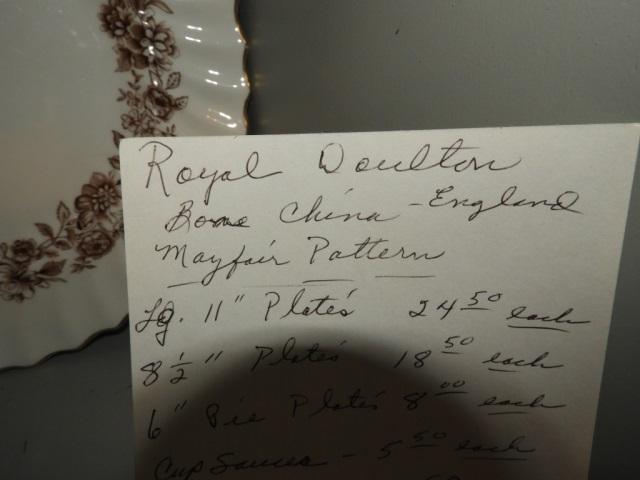 Royal Doulton
Bone China - England
Mayfair Pattern
Lg. 11" Plate's 24 50 each
8 1/2" Plate's 18 50 each
6" Pie Plate's 8 00 each
Cup Saucer - 5 50 each